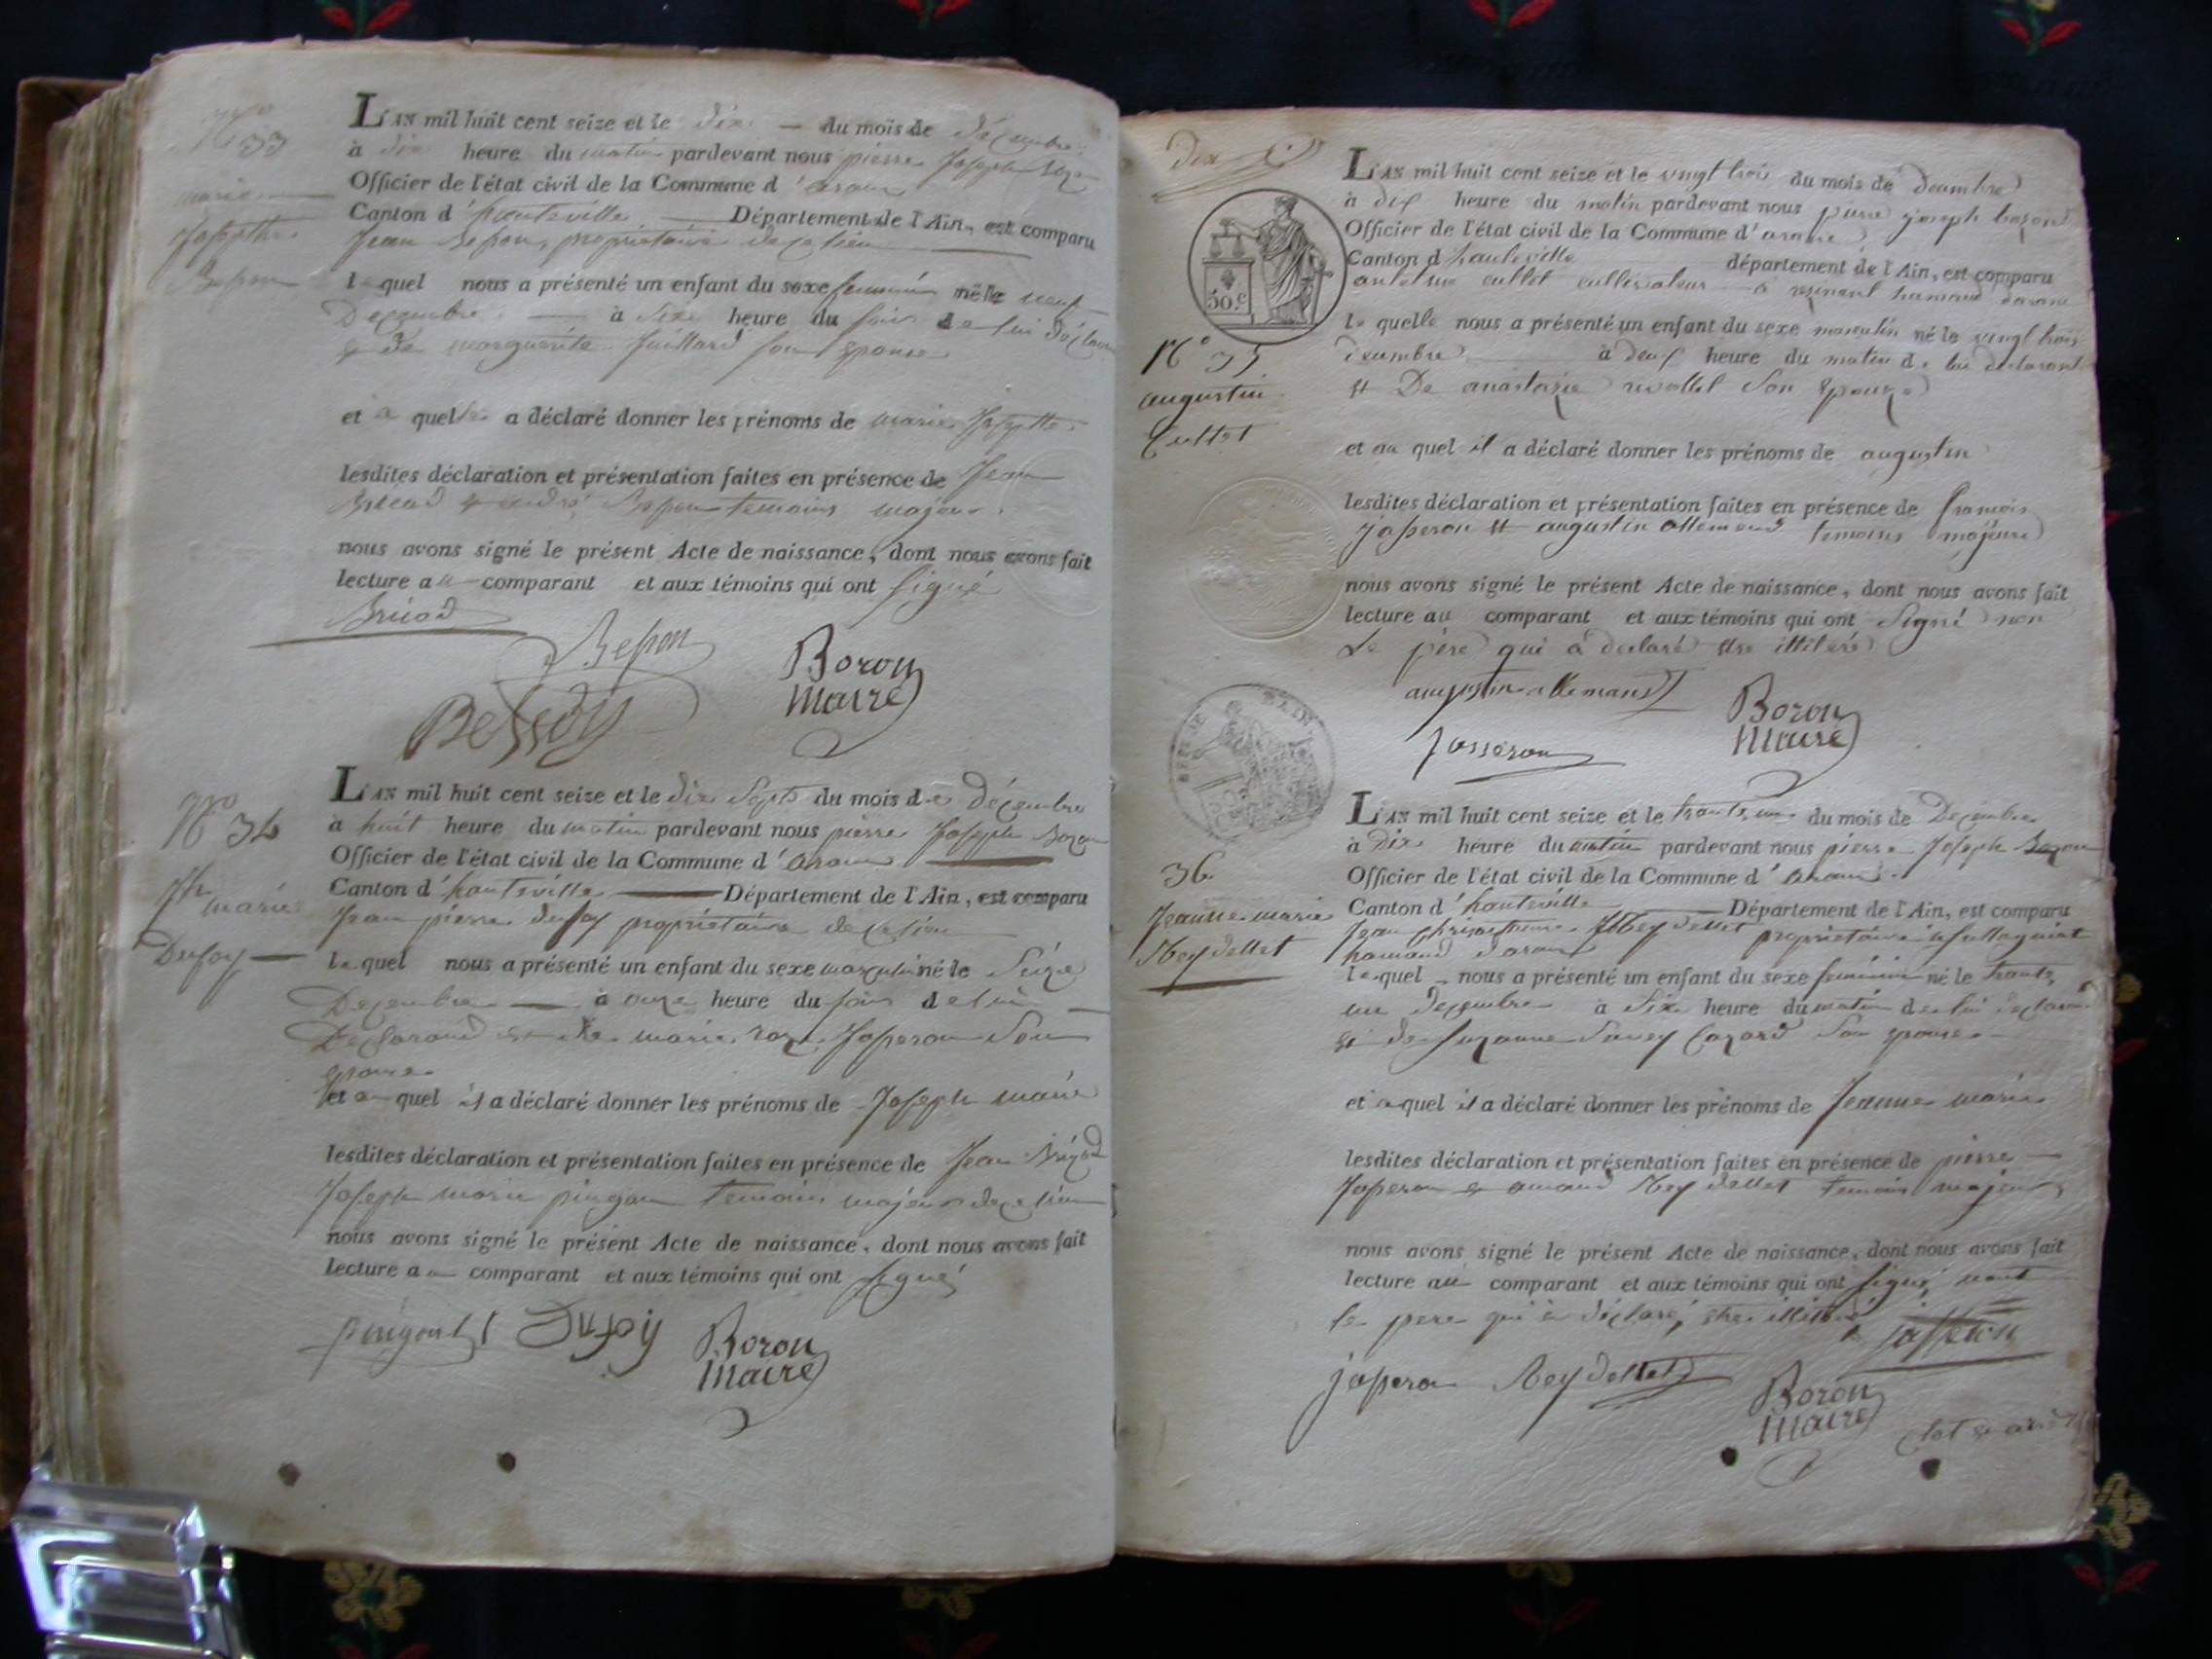 N° 33
marie
Josephte
Besson
L'AN mil huit cent seize et le dix du mois de décembre
à dix heure du matin pardevant nous pierre Joseph
Officier de l'état civil de la Commune d'aranc
Canton d'hauteville Département de l'Ain, est comparu
Jean Besson, propriétaire de ce lieu
lequel nous a présenté un enfant du sexe feminin née le neuf
Decembre à Six heure du soir de lui déclarant
& de marguerite Juillard son epouse
et a quelle a déclaré donner les prénoms de marie Josephte
lesdites déclaration et présentation faites en présence de Jean
Bricod & Besson temoins majeurs
nous avons signé le présent Acte de naissance, dont nous avons fait
lecture au comparant et aux témoins qui ont signé
Bricod
Besson
Bozon
Maire
Besson
N° 34
Jh
marie
Dufoy
L'AN mil huit cent seize et le dix Sept du mois de décembre
à huit heure du matin pardevant nous pierre Joseph Bozon
Officier de l'état civil de la Commune d'aranc
Canton d'hauteville Département de l'Ain, est comparu
Jean pierre dufoy propriétaire de ce lieu
lequel nous a présenté un enfant du sexe masculin né le Seize
Decembre à onze heure du soir de lui
Declarand et de marie roze Josseron Son
epouse
et au quel il a déclaré donner les prénoms de Joseph marie
lesdites déclaration et présentation faites en présence de Jean Bricod
Joseph marie pingon temoins majeurs de ce lieu
nous avons signé le présent Acte de naissance, dont nous avons fait
lecture au comparant et aux témoins qui ont signé
pingon Dufoy Bozon
Maire
dix
50 c.
N° 35
augustin
Cullet
L'AN mil huit cent seize et le vingt trois du mois de decembre
à dix heure du matin pardevant nous pierre joseph bozon
Officier de l'état civil de la Commune d'aranc
Canton d'hauteville département de l'Ain, est comparu
antelme cullet cultivateur a resinand hameau daranc
le quelle nous a présenté un enfant du sexe masculin né le vingt trois
decembre à deux heure du matin de lui declarant
et De anastazie revollet son epouze
et au quel il a déclaré donner les prénoms de augustin
lesdites déclaration et présentation faites en présence de francois
Josseron et augustin allemand temoins majeurs
nous avons signé le présent Acte de naissance, dont nous avons fait
lecture au comparant et aux témoins qui ont signé non
Le père qui a declaré etre illiteré
augustin allemand
Bozon
Maire
Josseron
36
Jeanne marie
Reydellet
L'AN mil huit cent seize et le trente un du mois de Decembre
à Dix heure du matin pardevant nous pierre Joseph Bozon
Officier de l'état civil de la Commune d'aranc
Canton d'hauteville Département de l'Ain, est comparu
Jean Reydellet propriétaire
hameau daranc
lequel nous a présenté un enfant du sexe feminin né le trente
un decembre à Six heure du matin de lui declarant
et de Suzanne Savey Cazard Son epouse
et a quel il a déclaré donner les prénoms de Jeanne marie
lesdites déclaration et présentation faites en présence de pierre
Josseron & amand Reydellet temoins majeurs
nous avons signé le présent Acte de naissance, dont nous avons fait
lecture au comparant et aux témoins qui ont signé
le pere qui a déclaré etre
josseron
josseron Reydellet
Bozon
Maire